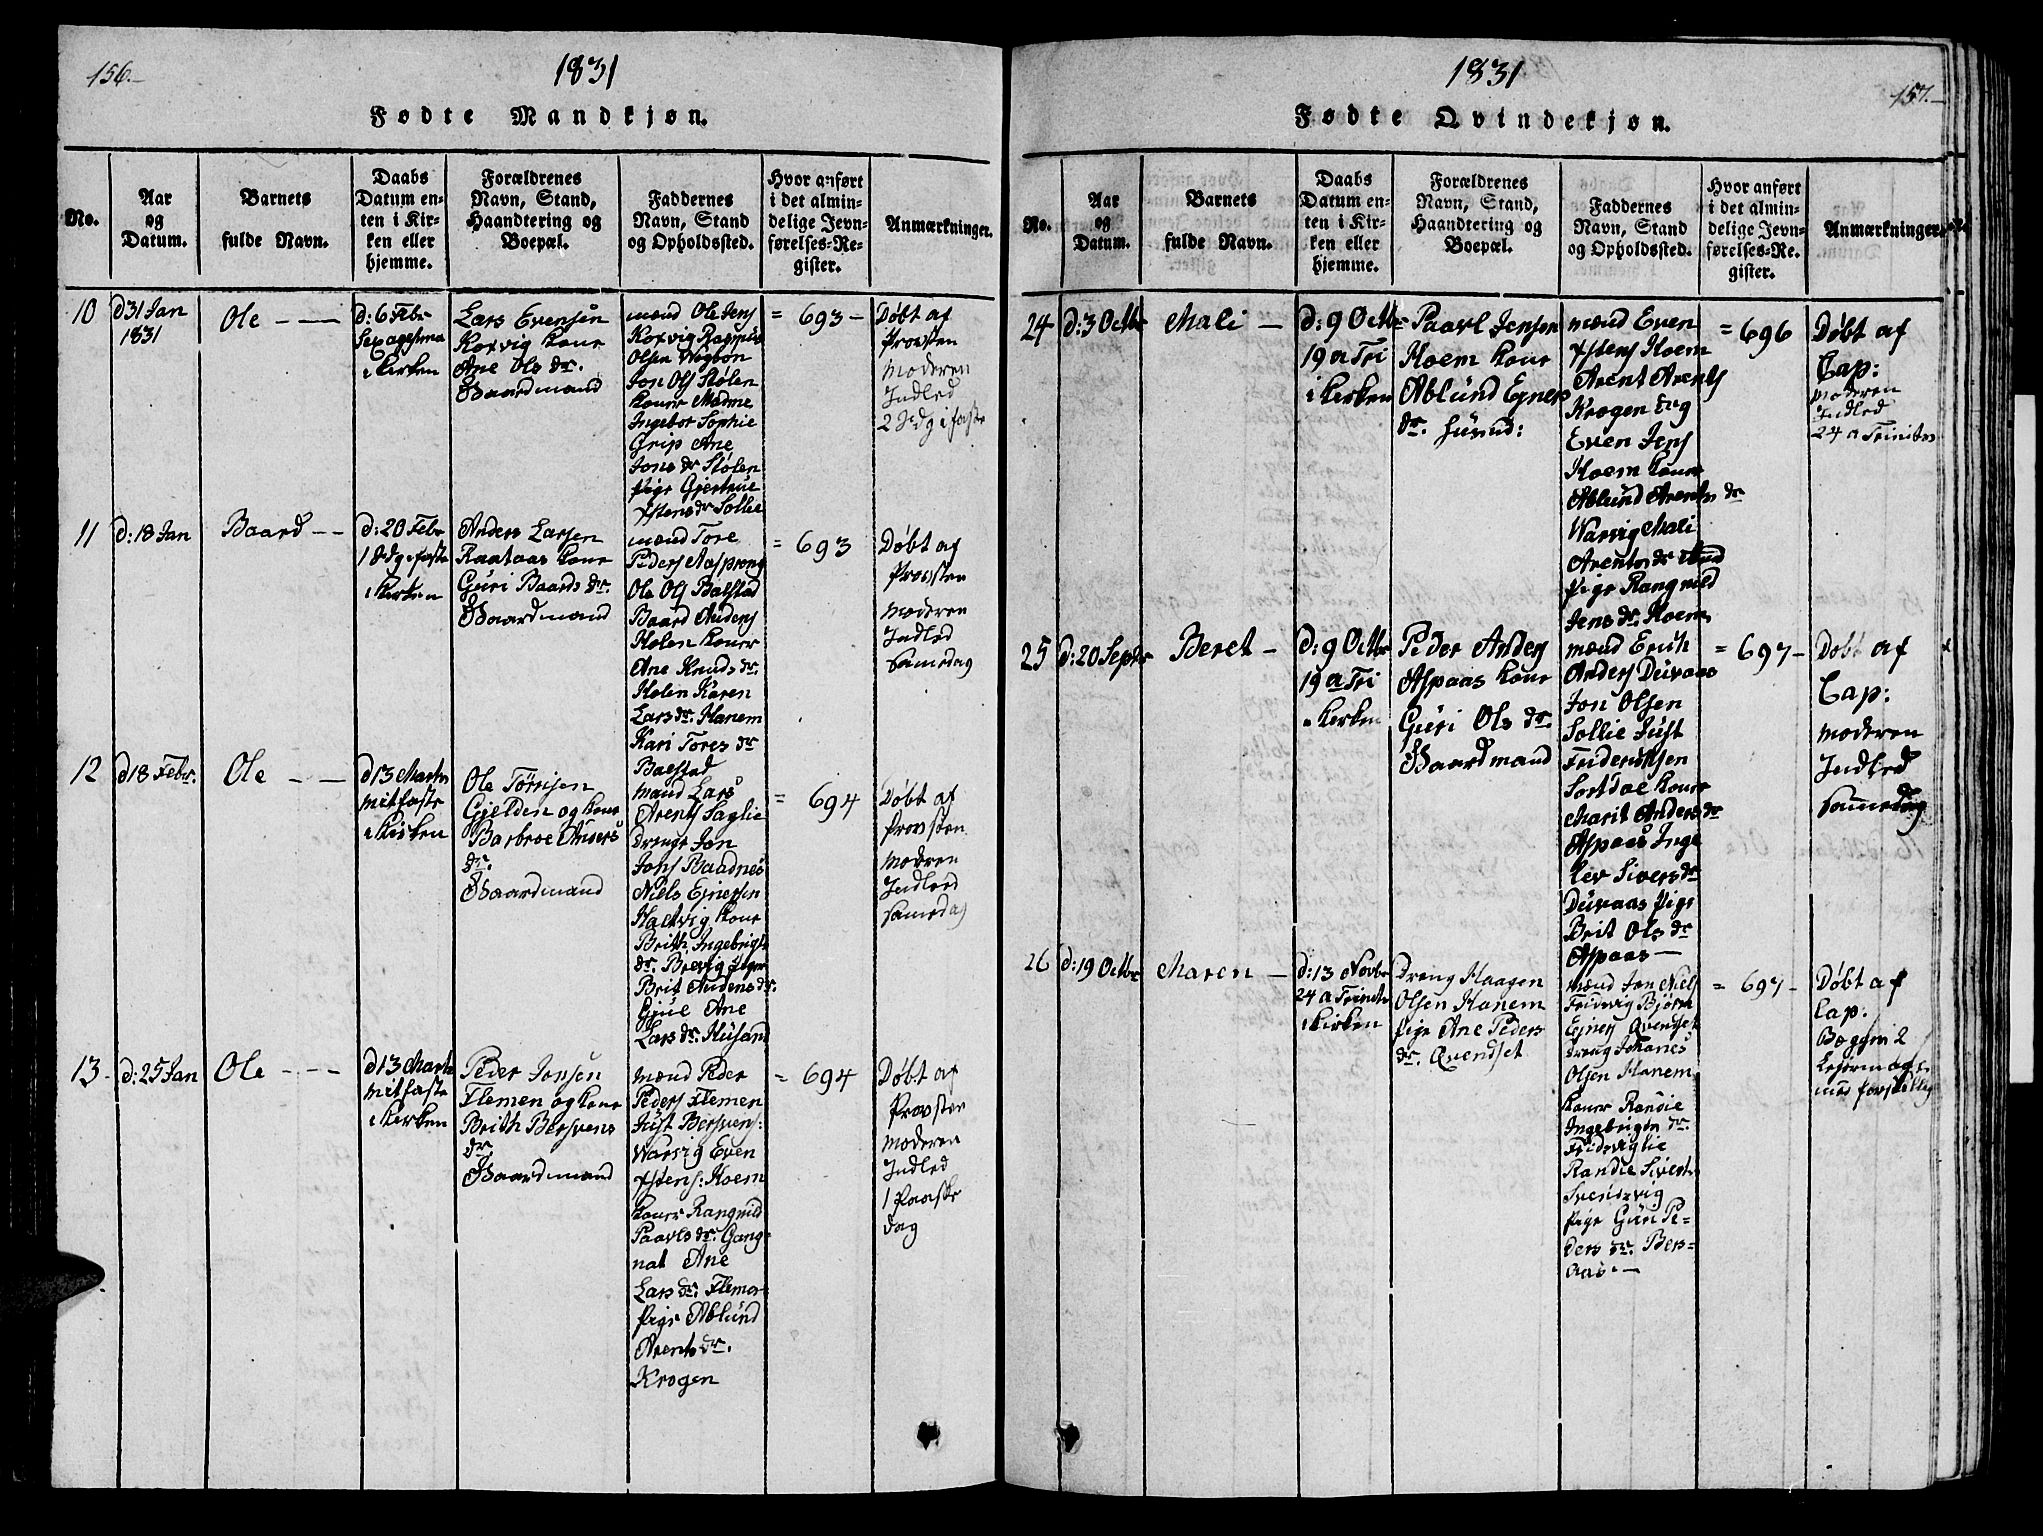 156.
1831
Fødte Mandkjøn.
No.
Aar
og
Datum.
Barnets
fulde Navn.
Daabs
Datum en-
ten i Kir-
ken eller
hjemme.
Forældrenes
Navn, Stand,
Haandtering og
Boepæl.
Faddernes
Navn, Stand
og Opholdssted.
Hvor anført
i det almin-
delige Jevn-
førelses-Re-
gister.
Anmærkninger.
10
d 31 Jan
1831
Ole
d: 6 Febr
Sexagesima
i Kirken
Lars Evensen
Korvig kone
Ane Ols dr.
Gaardmand
mænd Ole Jens
Korvig Rasmus
Olsen Wogbøn
Jon Ols Stølen
koner Madme
Ingebor Sophie
Grip Ane
Jons dr Stølen
pige Gjertrue
Ystens dr Sollie
= 693 -
Døbt af
Provsten
moderen
Indled
2 Sdg i faste
11
d: 18 Jan
Baard
d: 20 Febr
1 Sdg i faste
i Kirken
Anders Larsen
Raataas kone
Guri Baards dr.
Gaardmand
mænd Tore
Peders Asprong
Ole Ols Balstad
Baard Anders
Holen koner
Ane Knuds dr.
Holen Karen
Lars dr. Hanem
Kari Tores dr
Balstad
= 693
Døbt af
Provsten
moderen
Indled
samedag
12
d 18 Febr.
Ole
d 13 Marts
mitfaste
i Kirken
Ole Tørrisen
Gjelden og kone
Barbroe Anders
dr.
Gaardmand
mænd Lars
Arents Saglie
drenge Jon
Jons Baadnes
Niels Ejnersen
Haltvig kone
Brith Ingebrigts
dr. Brevig piger
Brit Andens dr.
Gjul Ane
Lars dr. Husand
= 694
Døbt af
Provsten
moderen
Indled
samedag
13
d: 25 Jan
Ole
d 13 Marts
mitfaste
i Kirken
Peder Jonsen
Flemen og kone
Brith Bersvens
dr.
Gaardmand
mænd Peder
Peders Flemen
Just Bersvens:
Warvig Even
Ystens: Hoem
koner Rangnild
Paavls dr. Gang-
nat Ane
Lars dr. Flemen
Pige Ablund
Arents dr.
Krogen
= 694
Døbt af
Provsten
moderen
Indled
1 Paaske
dag
1831
157.
Fødte Qvindekjøn.
No.
Aar
og
Datum.
Barnets
fulde Navn.
Daabs
Datum en-
ten i Kir-
ken eller
hjemme.
Forældrenes
Navn, Stand,
Haandtering og
Boepæl.
Faddernes
Navn, Stand
og Opholdssted.
Hvor anført
i det almin-
delige Jevn-
førelses-Re-
gister.
Anmærkninger.
24
d: 3 Octbr
Mali
d: 9 Octbr
19 a Tri
i Kirken
Paavl Jensen
Hoem kone
Ablund Ejners
dr. Husmd:
mænd Even
Ystens Hoem
Arent Arents
Krogen og
Even Jens
Hoem koner
Ablund Arents dr
Warvig Mali
Arents dr
pige Rangnild
Jens dr. Hoem
= 696
Døbt af
Cap:
moderen
Indled
24 a Trinits
25
d: 20 Septbr
Beret
d: 9 Octbr
19 a Tri
i Kirken
Peder Anders
Aspaas kone
Guri Ols dr.
Gaardmand
mænd Erich
Anders Duvaas
Jon Olsen
Sollie Just
Friderichsen
Sordal koner
Marit Anders dr
Aspaas Inge
lev Sivers dr
Duvaas pige
Brit Ols dr
Aspaas —
= 697 -
Døbt af
Cap:
moderen
Indled
sammedag
26
d: 19 Octbr
Maren
d: 13 Novbr
24 a Trinits
i Kirken
Dreng Haagen
Olsen Hanem
pige Ane Peders
dr. Qvendset
mænd Jon Niels
Fridvig Bjørn
Ejners Qvendset
dreng Johanes
Olsen Hanem
koner Randie
Ingebrigts dr.
Fridviglie
Randie Siverts
Svendsvig
pige Guri Pe-
ders dr. Bers-
aas. —
= 697 -
Døbt af
Cap:
Begges 2